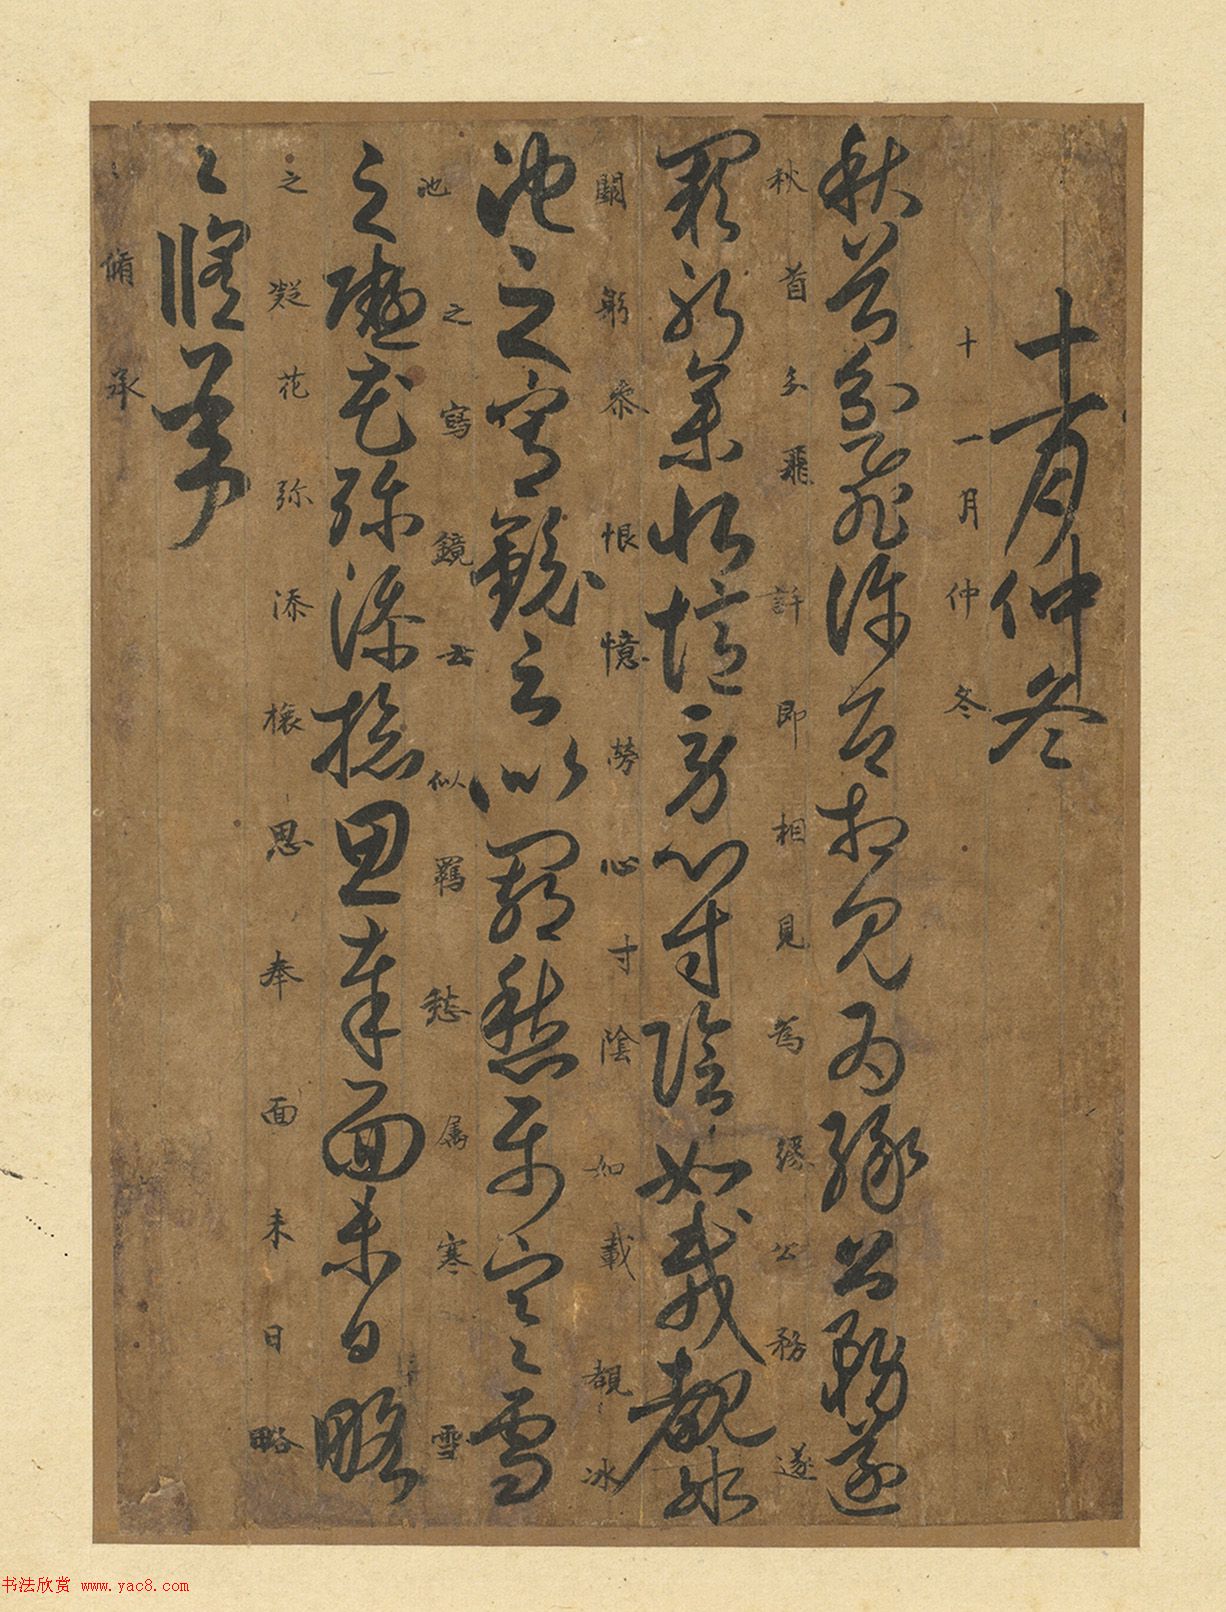 十一月仲冬
十一月仲冬
秋首分飛許即相見為緣公務遂
秋首分飛許即相見為緣公務遂
闕躬恭恨憶勞心寸陰如載覩冰
闕躬恭恨憶勞心寸陰如載覩冰
池之寫鏡云似羈愁属寒〻雪
池之寫鏡云似羈愁属寒雪
之凝花弥添思奉面未日略
之凝花弥添思奉面未日略
〻脩承
〻脩承
书法欣赏 www.yac8.com